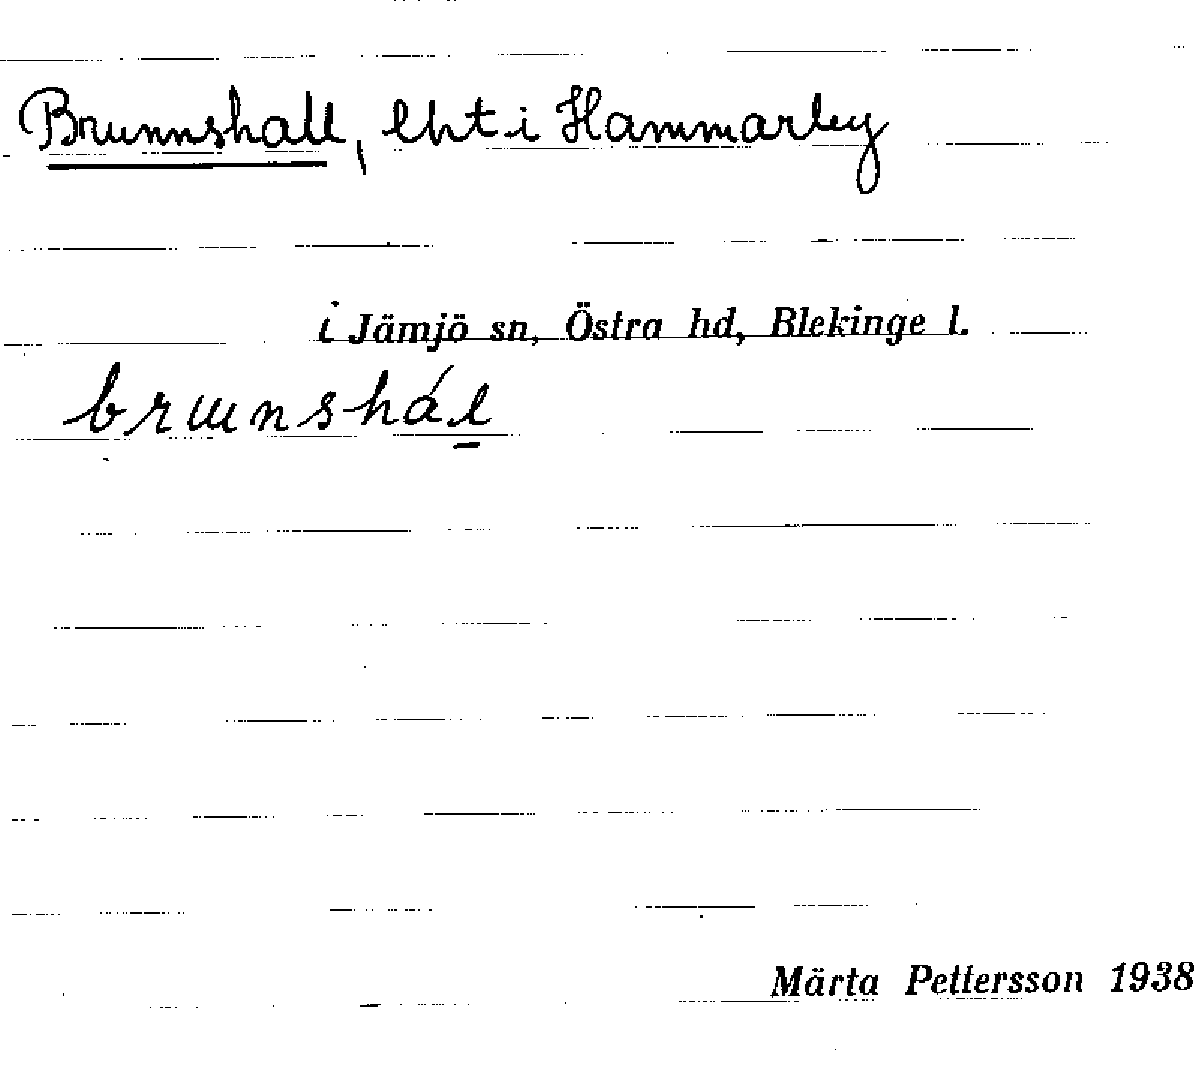 Brunnshall, lht i Hammarby
i Jämjö sn, Östra hd, Blekinge l.
brɯnshál
Märta Pettersson 1938